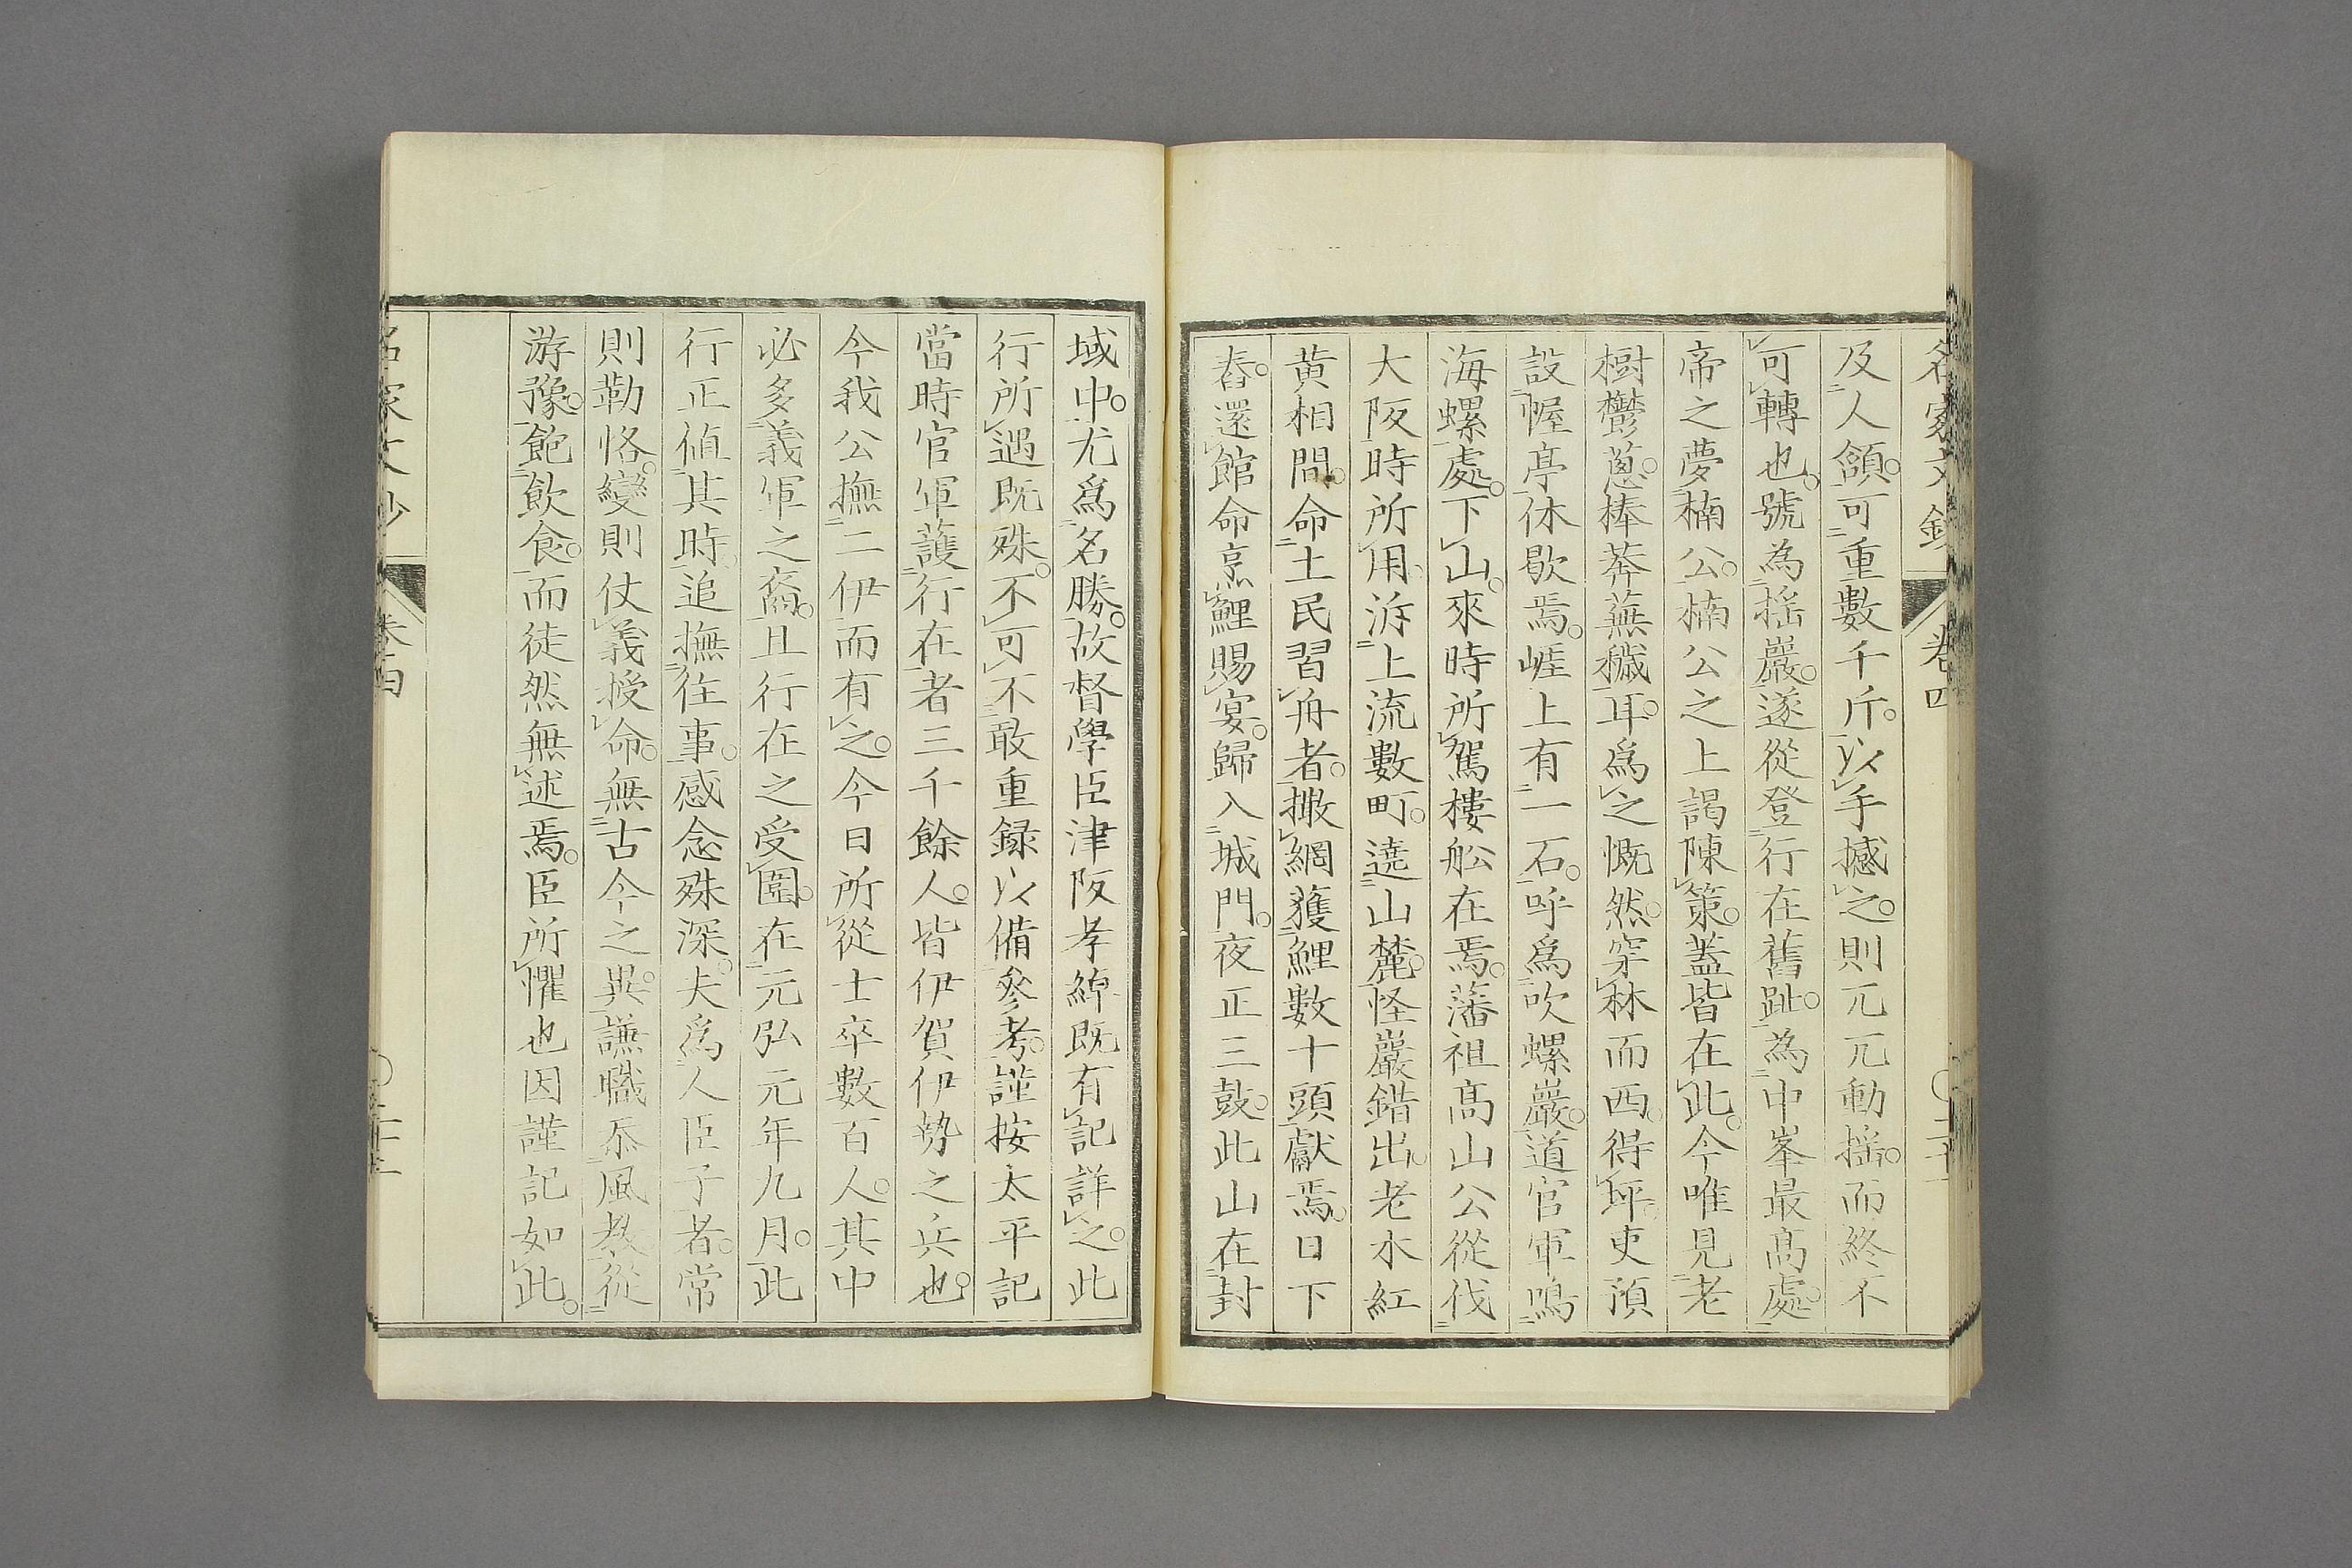 名家文鈔 卷四
及人頷。可重數千斤。以手撼之。則兀兀動揺。而終不
可轉也。號為揺巖。遂從登行在舊趾。為中峯最髙處。
帝之夢楠公。楠公之上謁陳策。蓋皆在此。今唯見老
樹鬱蔥。榛莽蕪穢耳。爲之慨然。穿林而西。得坪。吏預
設幄亭休歇焉。崕上有一石。呼爲吹螺巖。道官軍鳴
海螺處。下山。來時所駕樓舩在焉。藩祖髙山公從伐
大阪時所用。泝上流數町。遶山麓。怪巖錯出。老木紅
黄相間。命土民習舟者。撒網獲鯉數十頭獻焉。日下
舂。還館命烹鯉賜宴。歸入城門。夜正三鼓。此山在封
域中。尤爲名勝。故督學臣津阪孝綽既有記詳之。此
行所遇既殊。不可不敢重録以備參考。謹按太平記
當時官軍護行在者三千餘人。皆伊賀伊勢之兵也。
今我公撫二伊而有之。今日所從士卒數百人。其中
必多義軍之裔。且行在之受圍。在元弘元年九月。此
行正値其時。追撫往事。感念殊深。夫爲人臣子者。常
則勤恪。變則仗義授命。無古今之異。謙職忝風教。從
游豫。飽飲食。而徒然無述焉。臣所懼也因謹記如此。
名家文鈔 卷四